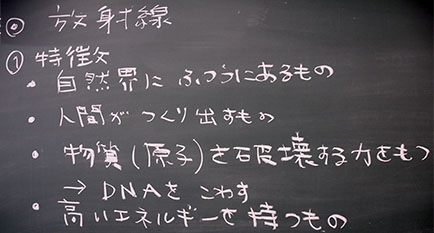 ◎ 放射線
① 特徴
・自然界にふつうにあるもの
・人間がつくり出すもの
・物質(原子)を破壊する力をもつ
→ DNAをこわす
・高いエネルギーを持つもの